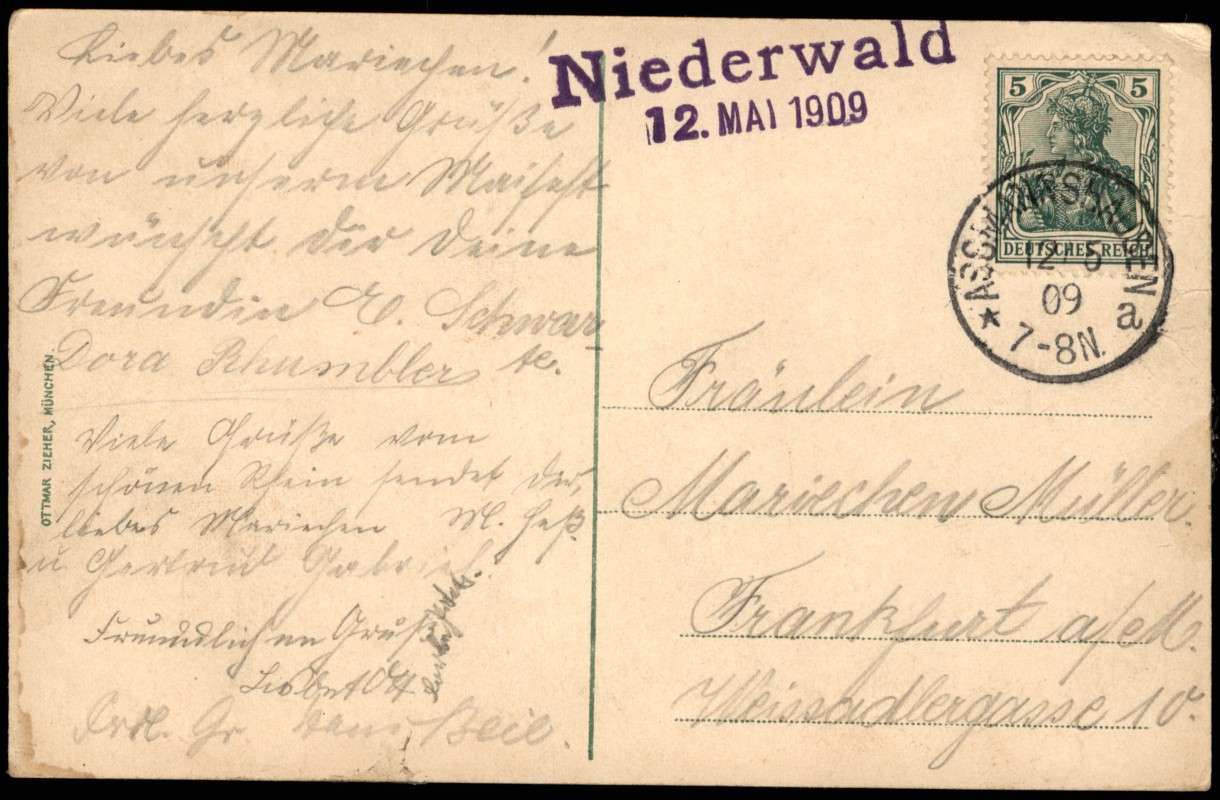 Liebes Mariechen!
Viele herzliche Grüße
von unserm Maifest
wünscht dir deine
Freundin E. Schwar-
te.
Dora Rhumbler
Viele Grüße vom
schönen Rhein sendet dir,
liebes Mariechen M. Heß
u Gertrud Gabriel.
Freundlichen Gruß
Lisbet Ott
Frdl. Gr. von Beil.
OTTMAR ZIEHER, MÜNCHEN.
Niederwald
12. MAI 1909
5 5
DEUTSCHES REICH
* ASSMANNSHAUSEN a
12/5
09
7-8N.
Fräulein
Mariechen Müller.
Frankfurt a/M.
Weissadlergasse 10.